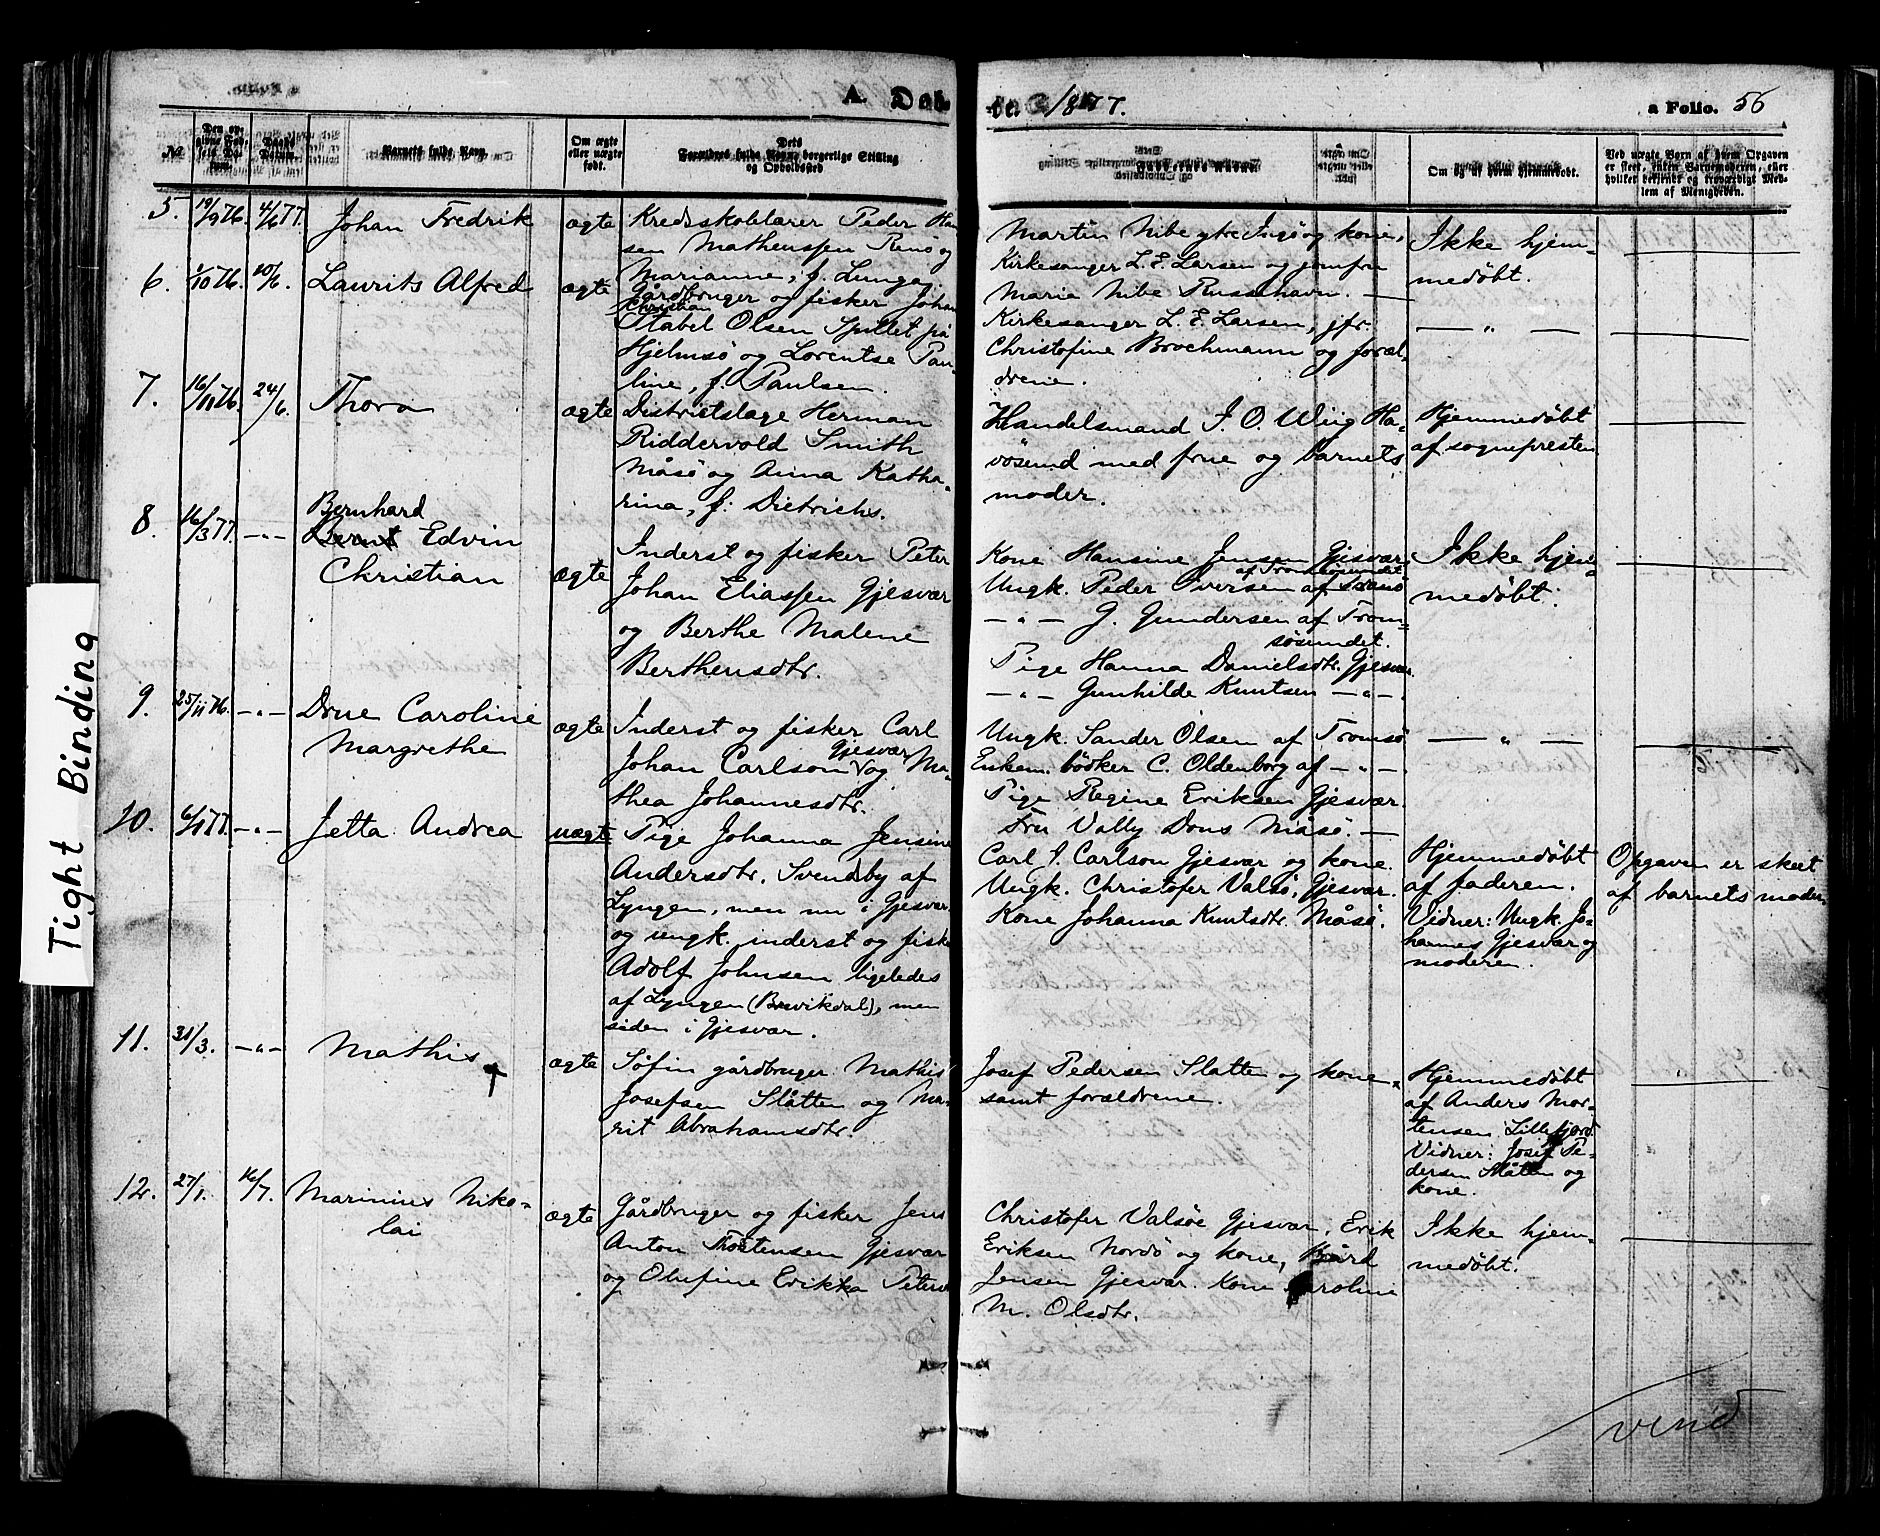 A. Døb-
te. 1877.
a Folio. 56
№
Barnets fulde Navn.
Om ægte
eller uægte
født.
Dets
Forældres fulde Navne borgerlige Stilling
og Opholdssted
Faddernes Navne
Om og af hvem hjemmedøbt.
Ved uægte Børn af hvem Opgaven
er skeet, enten Barnemoderen, eller
hvilket bekjendt og troværdigt Med-
lem af Menigheden.
5. 19/9 76. 4/6 77. Johan Fredrik ægte
Kredsskolelærer Peder Han-
sen Matheussen Renö og
Marianne, f. Lunge.
Martin Nibe Ingö og kone,
Kirkesanger L. E. Larsen og jomfru
Maria Nibe Russehavn. —
Ikke hjem-
medöbt.
6. 1/10 76. 10/6. Laurits Alfred ægte
Gårdbruger og fisker Johan
Christian
Stabel Olsen Spillet på
Hjelmsö og Lorentse Pau-
line, f. Paulsen.
Kirkesanger L. E. Larsen, jfr.
Christofine Brochmann og foræl-
drene.
— " —
7. 16/11 76. 24/6. Thora ægte
Districtslæge Herman
Riddervold Smith
Måsö og Anna Katha-
rina, f. Dietrichs.
Handelsmand J. O. Wiig Ha-
vösund med frue og barnets
moder.
Hjemmedöbt
af sognepresten
8. 16/3 77. — " —
Bernhard
Bernt Edvin
Christian
ægte
Inderst og fisker Peter
Johan Eliassen Gjesvær
og Berthe Malene
Berthensdtr.
Kone Hansine Jensen Gjesvær
af Tromsösundet
Ungk. Peder Iversen af Tromsö
— " — G. Gundersen af Trom-
sösundet.
Pige Hanna Danielsdtr. Gjesvær.
— " — Gunhilde Knutsen — " —.
Ikke hjem-
medöbt.
9. 25/11 76. — " — Drue Caroline
Margrethe
ægte
Inderst og fisker Carl
Gjesvær
Johan Carlson og Ma-
thea Johannesdtr.
Ungk. Sander Olsen af Tromsö
Enkem. bödker C. Oldenborg af — " —.
Pige Regine Eriksen Gjesvær.
Fru Vally Dons Måsö. —
— " —
10. 6/1 77. — " — Jetta Andrea uægte
Pige Johanna Jensine
Andersdtr. Svendby af
Lyngen, men nu i Gjesvær.
og ungk. inderst og fisker
Adolf Johnsen ligeledes
af Lyngen (Brevikdal), men
siden i Gjesvær.
Carl J. Carlson Gjesvær og kone.
Ungk. Christofer Valsö, Gjesvær.
Kone Johanna Knutsdtr. Måsö.
Hjemmedöbt
af faderen.
Vidner: Ungk. Jo-
hannes Gjesvær og
moderen.
Opgaven er skeet
af barnets moder.
11. 31/3. — " — Mathis † ægte
Söfin gårdbruger Mathis
Josefsen Slåtten og Ma-
rit Abrahamsdtr.
Josef Pedersen Slatten og kone
samt forældrene.
Hjemmedöbt
af Anders Mor-
tensen Lillefjord.
Vidner: Josef Pe-
dersen Slåtten og
kone.
12. 27/1. 16/7. Marinius Niko-
lai
ægte
Gårdbruger og fisker Jens
Anton Thostensen Gjesvær
og Olufine Erikka Peters
Christofer Valsöe Gjesvær, Erik
Eriksen Nordö og kone, Bård
Jensen Gjesvær. Kone Karoline
M. Olsdtr.
Ikke hjem-
medöbt.
vend
Tight Binding